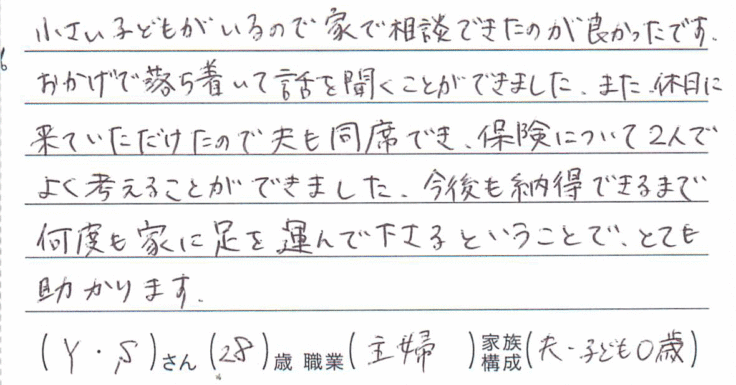 小さい子どもがいるので家で相談できたのが良かったです.
おかげで落ち着いて話を聞くことができました、また、休日に
来ていただけたので夫も同席でき、保険について2人で
よく考えることができました、今後も納得できるまで
何度も家に足を運んで下さるということで、とても
助かります.
(Y・S)さん(28)歳 職業(主婦 )家族構成(夫・子ども0歳)